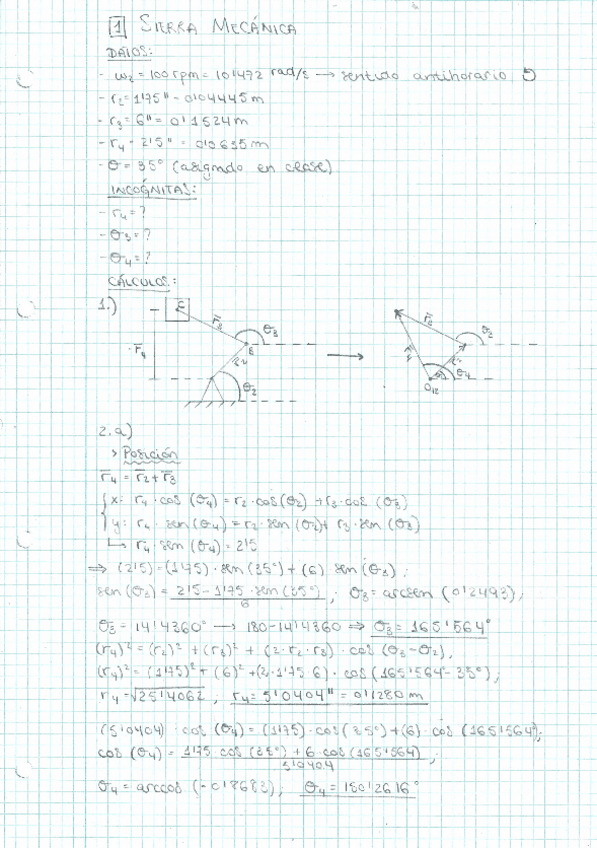 1 SIERRA MECÁNICA
DATOS:
- ω₂ = 100 rpm = 10'472 rad/s → sentido antihorario ↺
- r₂ = 1'75" = 0'04445 m
- r₃ = 6" = 0'1524 m
- r₄ = 2'5" = 0'0635 m
- θ = 35° (asignado en clase)
INCÓGNITAS:
- r₄ = ?
- θ₃ = ?
- θ₄ = ?
CÁLCULOS:
1.)
r̄₄ r̄₃ θ₃ B r₂ θ₂
→
r̄₃ θ₃ r̄₄ r₂ θ₄ O₁₂
2.a)
> Posición
r̄₄ = r̄₂ + r̄₃
{ x: r₄ · cos (θ₄) = r₂ · cos(θ₂) + r₃ · cos (θ₃)
y: r₄ · sen (θ₄) = r₂ · sen (θ₂) + r₃ · sen (θ₃)
↳ r₄ · sen (θ₄) = 2'5
⇒ (2'5) = (1'75) · sen (35°) + (6) sen (θ₃);
sen (θ₃) = 2'5 - 1'75 · sen (35°) / 6 ; θ₃ = arcsen (0'2493);
θ₃ = 14'4360° → 180 - 14'4360 ⇒ θ₃ = 165'564°
(r₄)² = (r₂)² + (r₃)² + (2 · r₂ · r₃) · cos (θ₃ - θ₂);
(r₄)² = (1'75)² + (6)² + (2 · 1'75 · 6) · cos (165'564° - 35°);
r₄ = √25'4062 ; r₄ = 5'0404" = 0'1280 m
(5'0404) · cos (θ₄) = (1'75) · cos (35°) + (6) · cos (165'564);
cos (θ₄) = 1'75 · cos (35°) + 6 · cos (165'564) / 5'0404 ;
θ₄ = arccos (-0'8683); θ₄ = 150'2616°